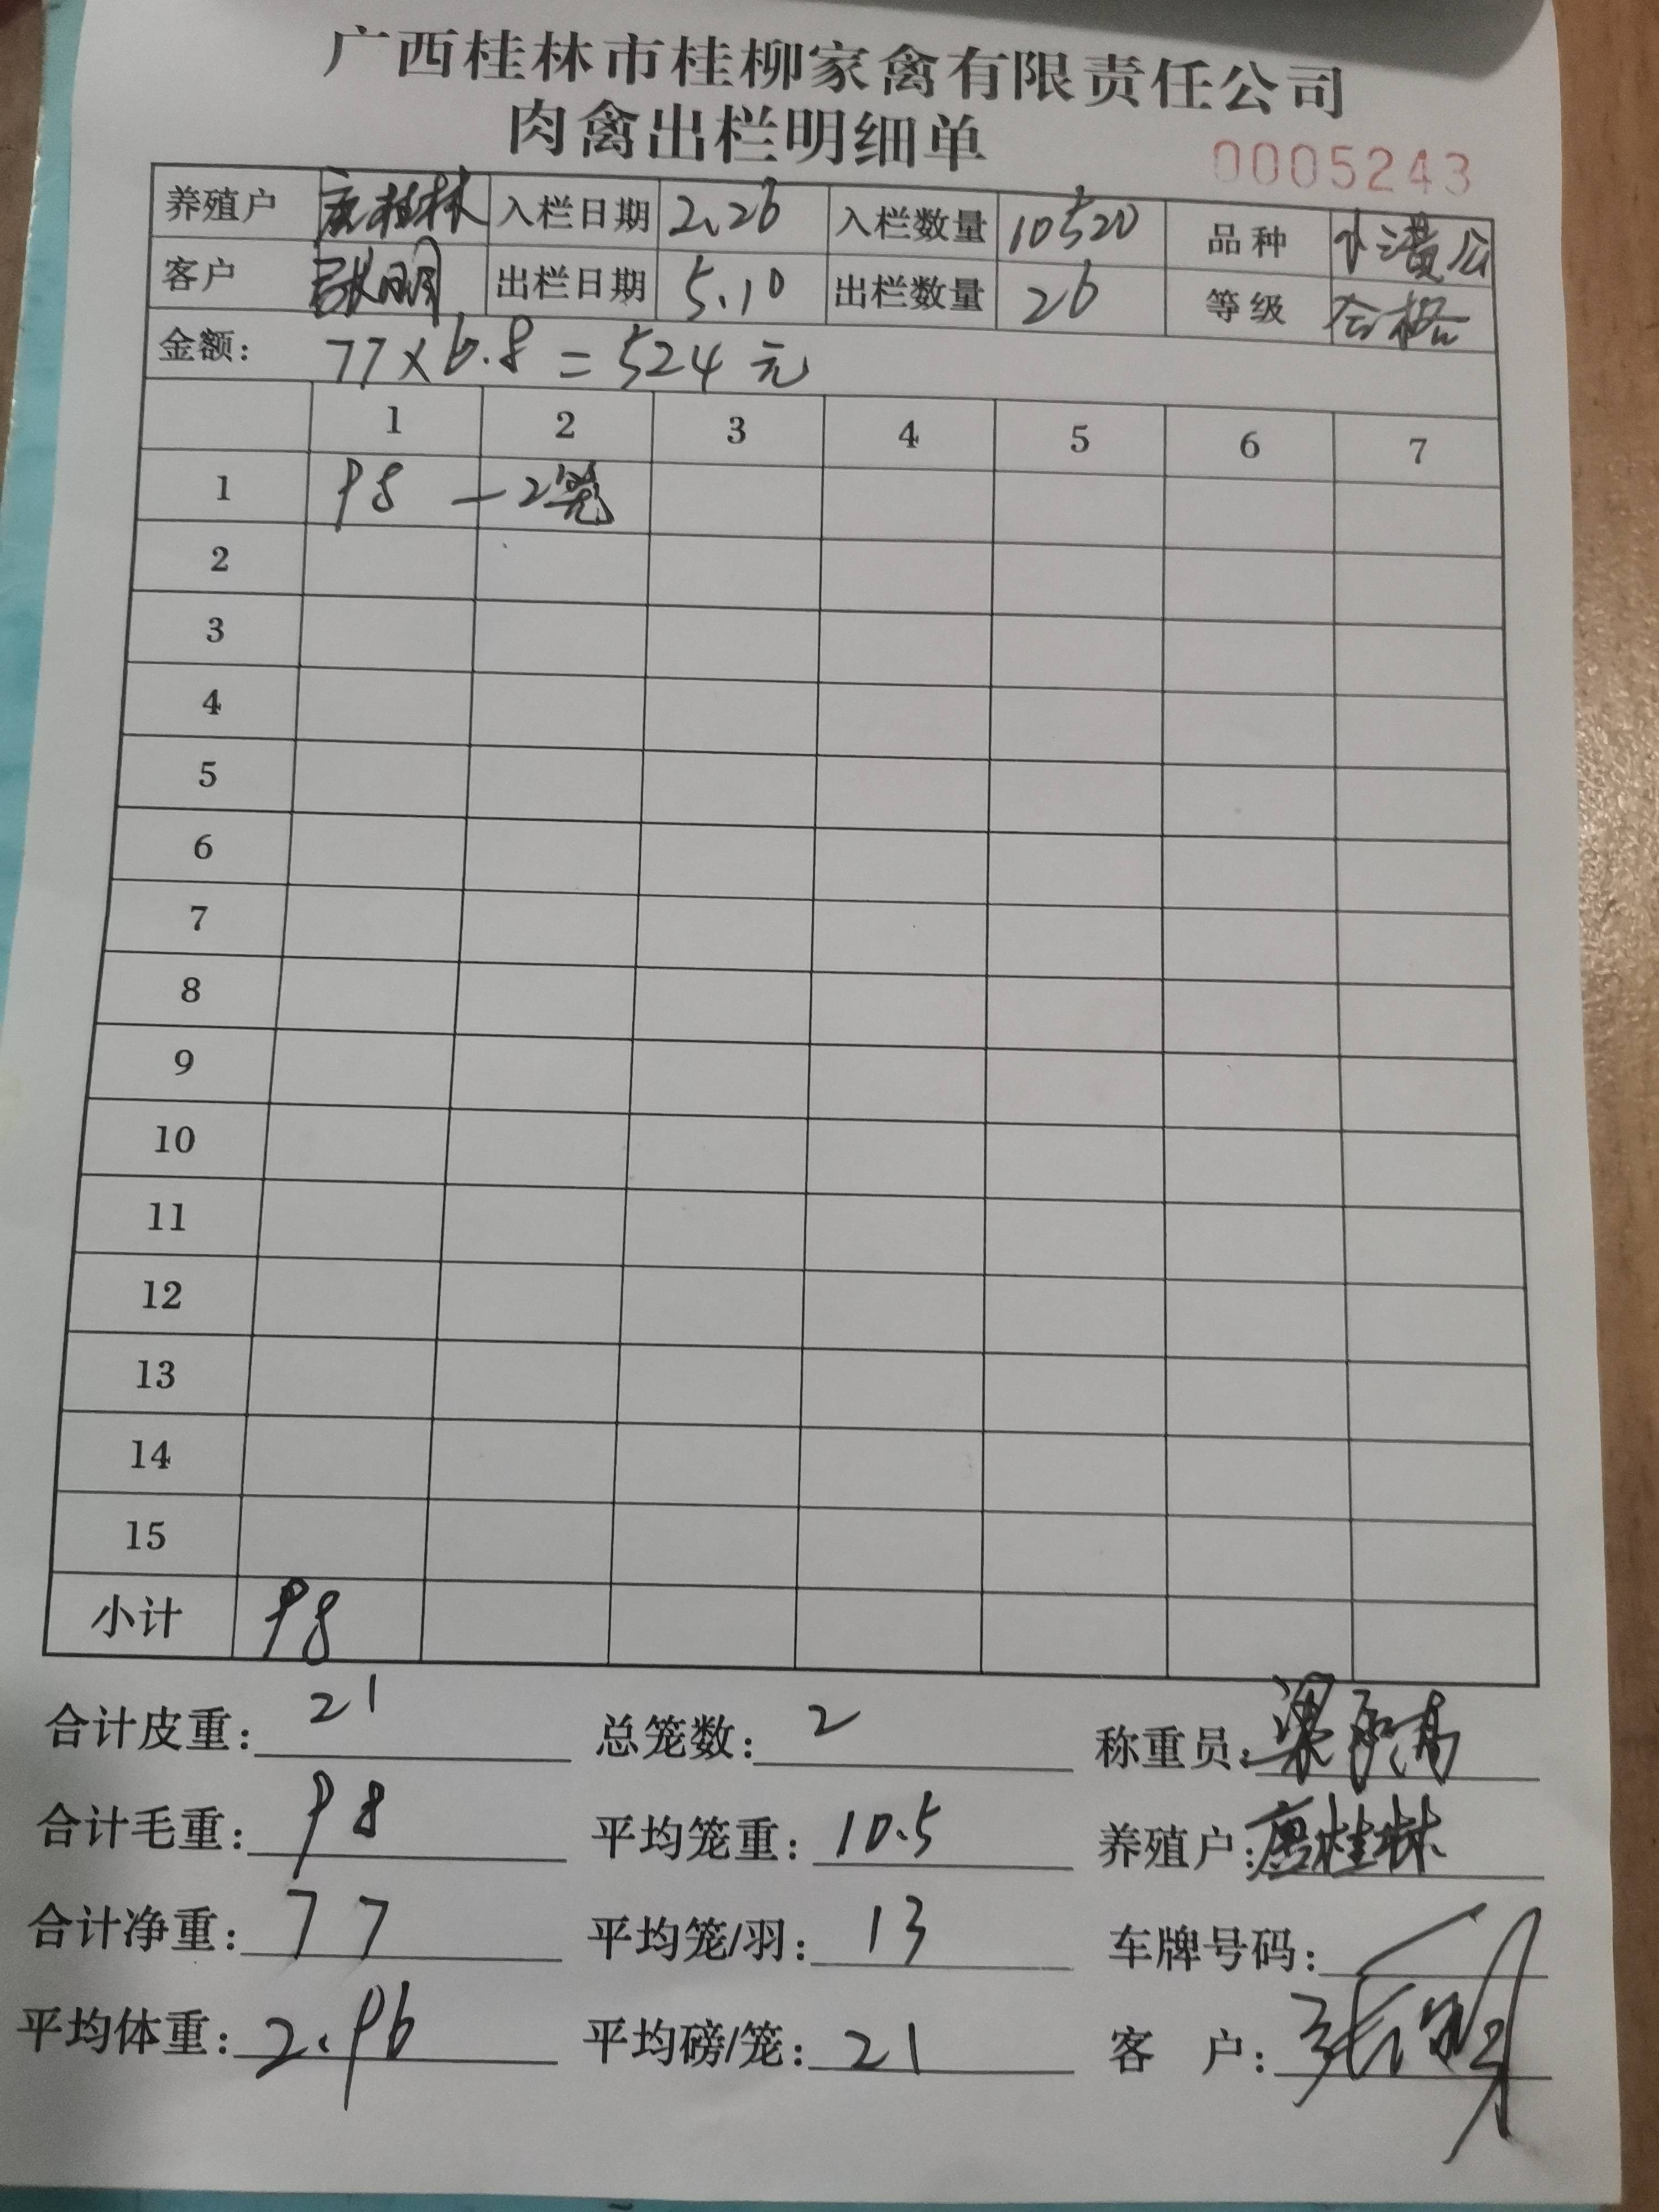 广西桂林市桂柳家禽有限责任公司
肉禽出栏明细单
0005243
养殖户 唐桂林 入栏日期 2.26 入栏数量 10520 品种 小黄公
客户 张明 出栏日期 5.10 出栏数量 26 等级 合格
金额: 77×6.8=524元
1 2 3 4 5 6 7
1 98 — 2笼
2
3
4
5
6
7
8
9
10
11
12
13
14
15
小计 98
合计皮重: 21 总笼数: 2 称重员: 梁
合计毛重: 98 平均笼重: 10.5 养殖户: 唐桂林
合计净重: 77 平均笼/羽: 13 车牌号码:
平均体重: 2.96 平均磅/笼: 21 客 户: 张明